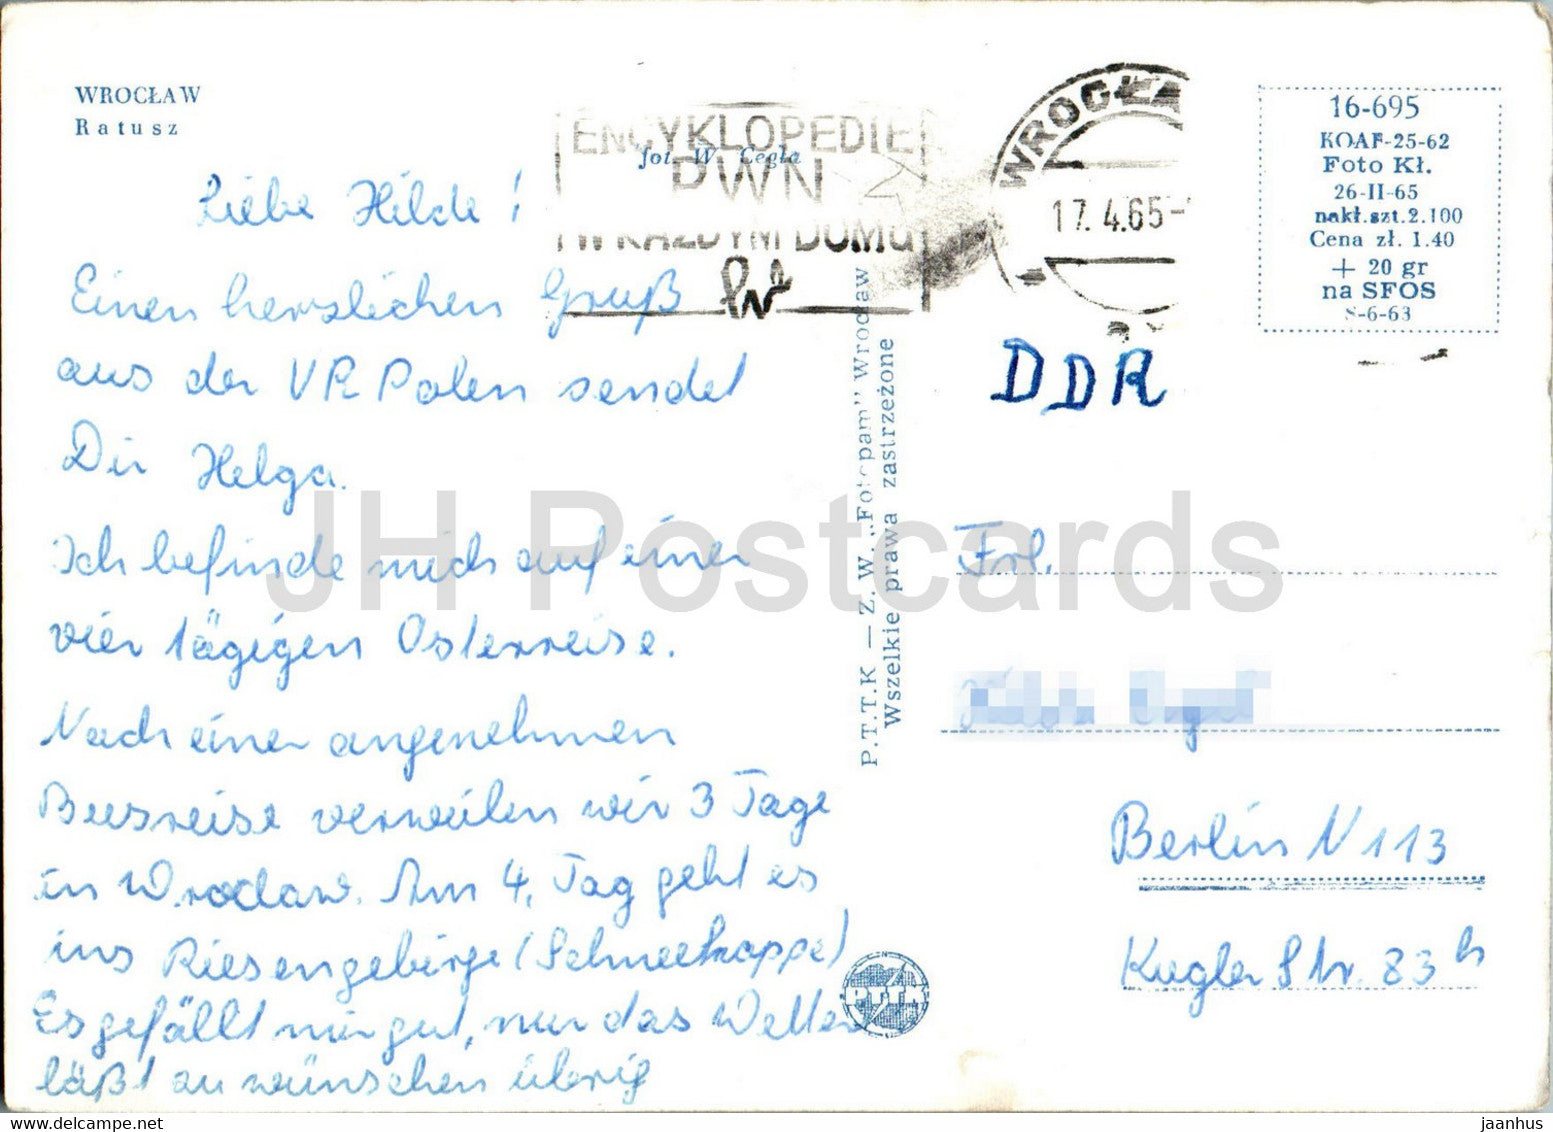 WROCŁAW
Ratusz
fot. W. Cegła
ENCYKLOPEDIE
PWN
W KAŻDYM DOMU
WROCŁA
17.4.65
16-695
KOAF-25-62
Foto Kł.
26-II-65
nakł.szt.2.100
Cena zł. 1.40
+ 20 gr
na SFOS
S-6-63
Liebe Hilde!
Einen herzlichen Gruß
aus der VR Polen sendet
Dir Helga.
Ich befinde mich auf einer
vier tägigen Osterreise.
Nach einer angenehmen
Busreise verweilen wir 3 Tage
in Wroclaw. Am 4. Tag geht es
ins Riesengebirge (Schneekoppe)
Es gefällt mir gut, nur das Wetter
läßt zu wünschen übrig
P.T.T.K — Z. W. „Fotopam" Wrocław
Wszelkie prawa zastrzeżone
PTTK
DDR
Frl.
Berlin N 113
Kugler Str. 83 b
JH Postcards
www.delcampe.net
jaanhus